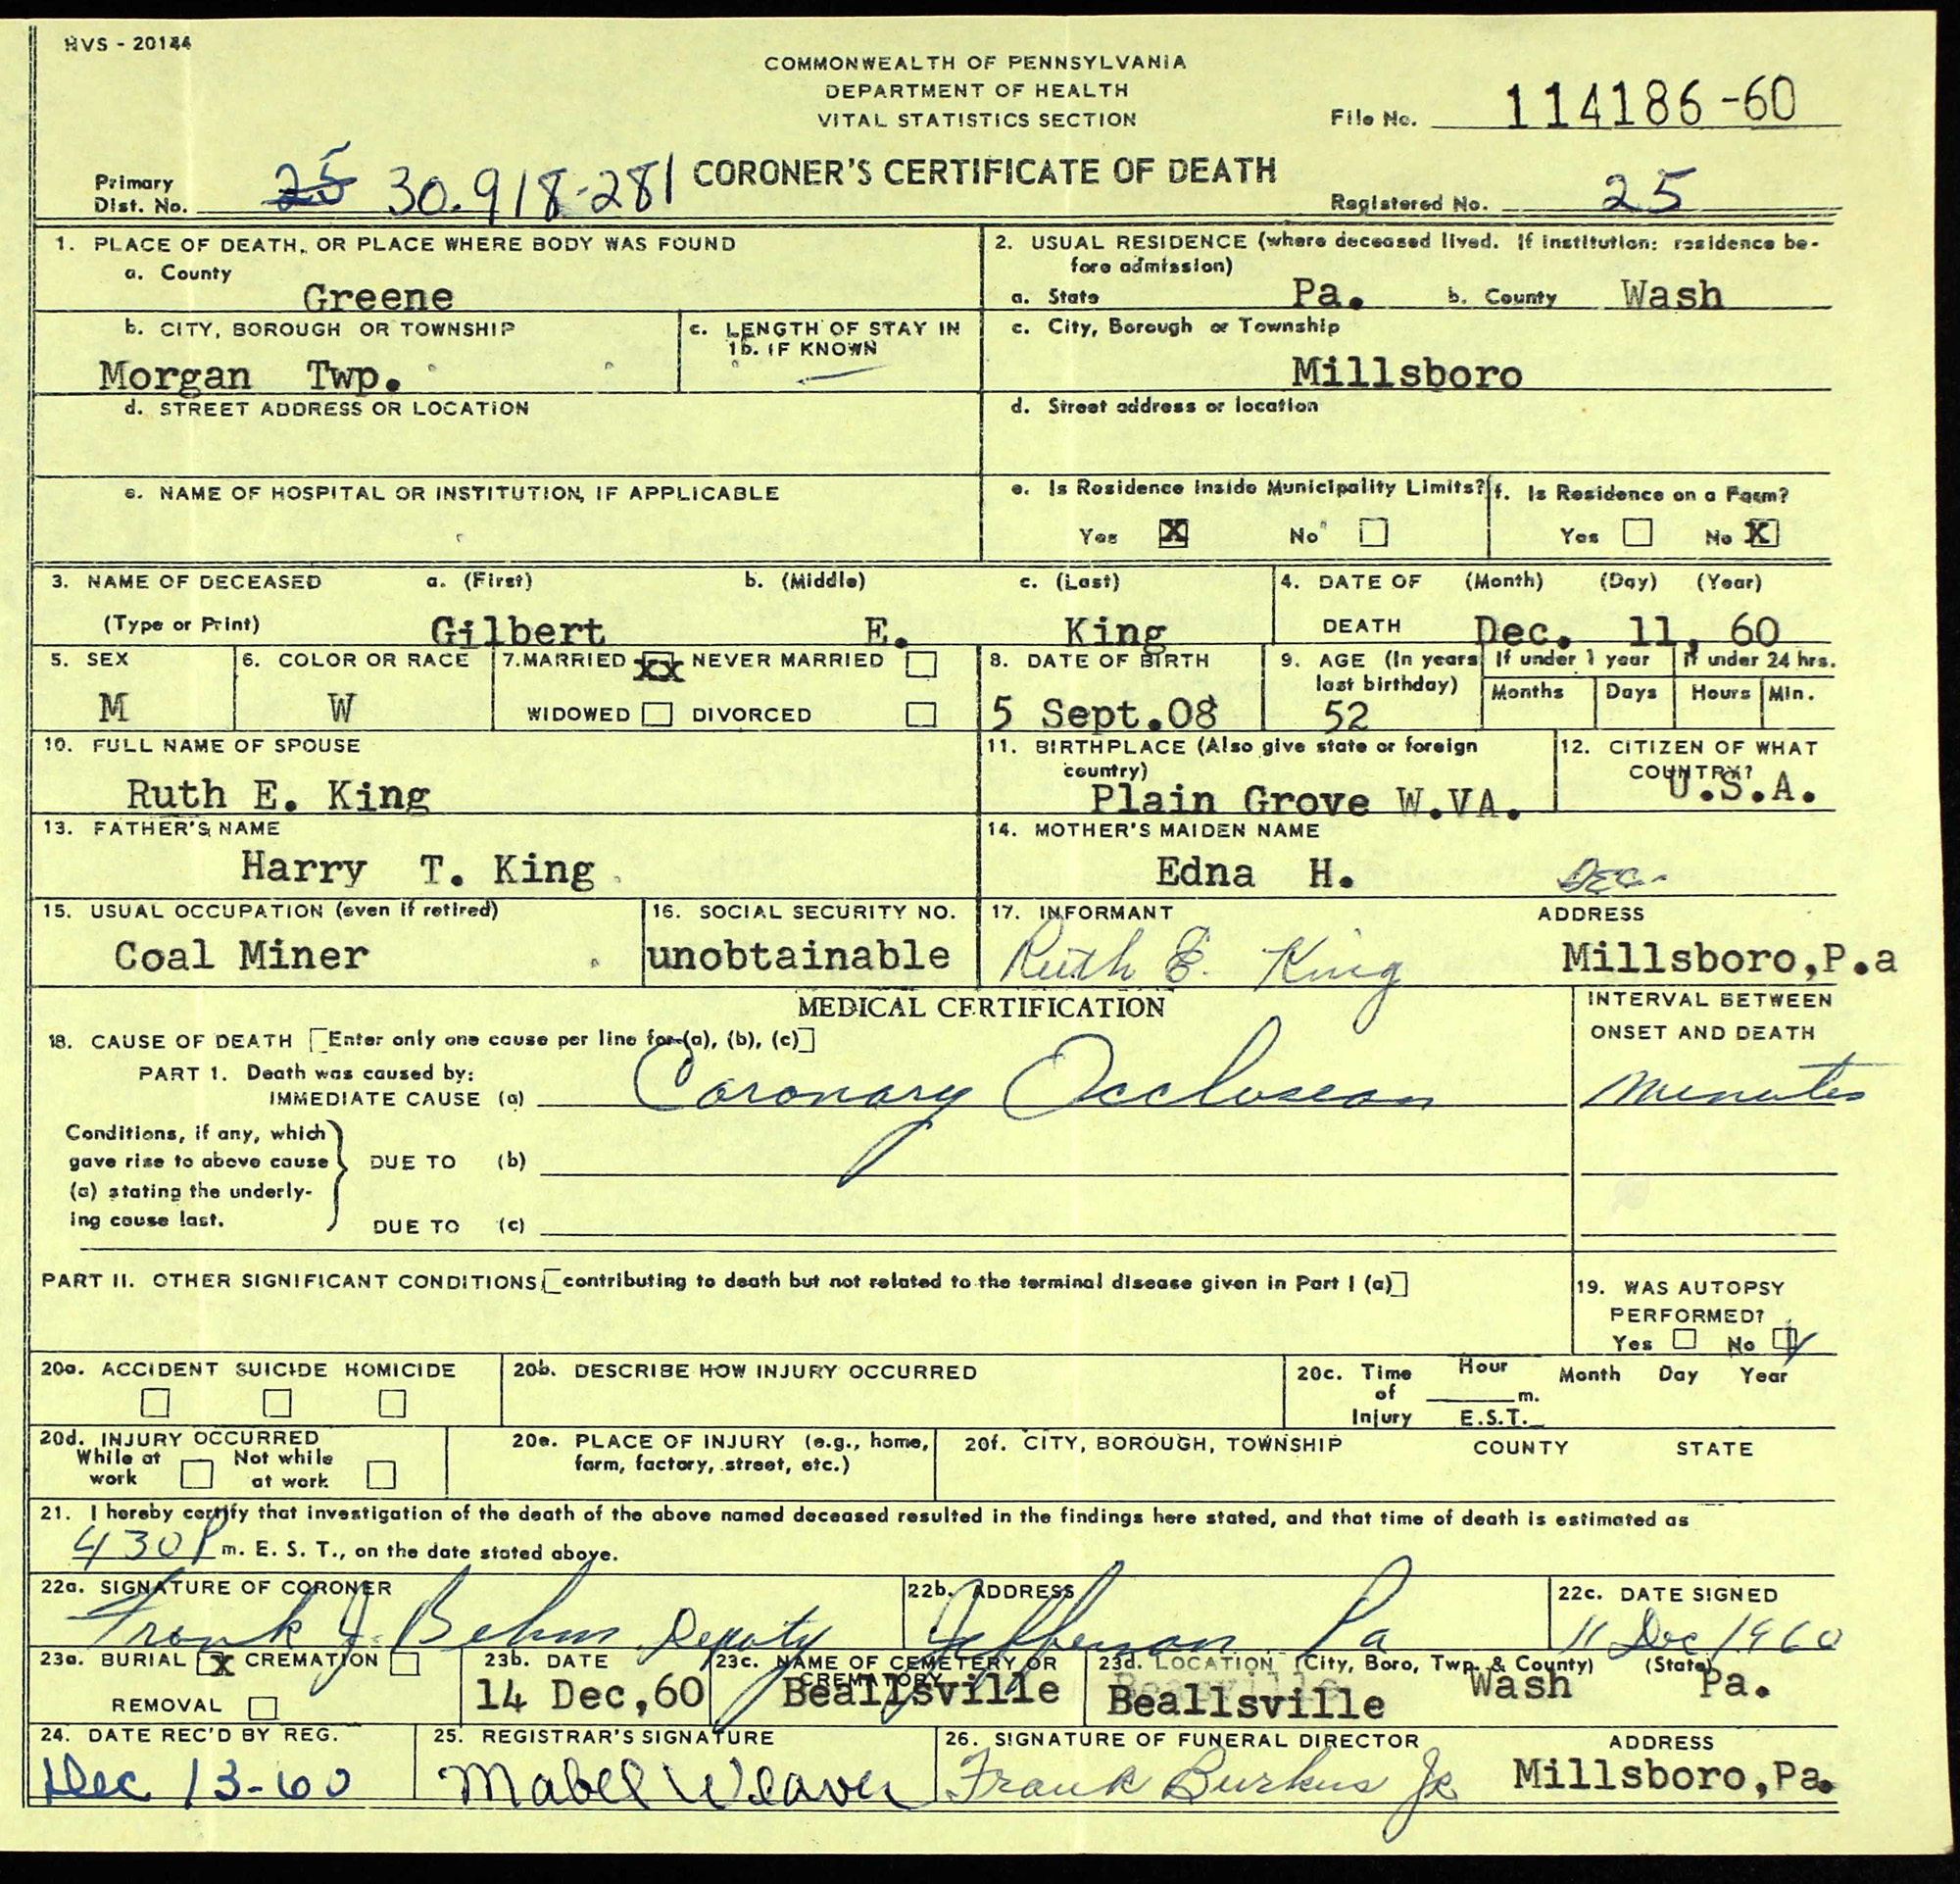 HVS - 20144
COMMONWEALTH OF PENNSYLVANIA
DEPARTMENT OF HEALTH
VITAL STATISTICS SECTION
File No. 114186-60
CORONER'S CERTIFICATE OF DEATH
Primary Dist. No. 25 30.918-281
Registered No. 25
1. PLACE OF DEATH, OR PLACE WHERE BODY WAS FOUND
a. County
Greene
2. USUAL RESIDENCE (where deceased lived. If institution: residence be-
fore admission)
a. State Pa. b. County Wash
b. CITY, BOROUGH OR TOWNSHIP
Morgan Twp.
c. LENGTH OF STAY IN
1b. IF KNOWN
c. City, Borough or Township
Millsboro
d. STREET ADDRESS OR LOCATION
d. Street address or location
e. NAME OF HOSPITAL OR INSTITUTION, IF APPLICABLE
e. Is Residence inside Municipality Limits?
Yes X No
f. Is Residence on a Farm?
Yes No X
3. NAME OF DECEASED a. (First) b. (Middle) c. (Last)
(Type or Print) Gilbert E. King
4. DATE OF (Month) (Day) (Year)
DEATH Dec. 11, 60
5. SEX
M
6. COLOR OR RACE
W
7. MARRIED XX NEVER MARRIED
WIDOWED DIVORCED
8. DATE OF BIRTH
5 Sept.08
9. AGE (In years
last birthday)
52
If under 1 year
Months Days
If under 24 hrs.
Hours Min.
10. FULL NAME OF SPOUSE
Ruth E. King
11. BIRTHPLACE (Also give state or foreign
country)
Plain Grove W.VA.
12. CITIZEN OF WHAT
COUNTRY?
U.S.A.
13. FATHER'S NAME
Harry T. King
14. MOTHER'S MAIDEN NAME
Edna H. DEC-
15. USUAL OCCUPATION (even if retired)
Coal Miner
16. SOCIAL SECURITY NO.
unobtainable
17. INFORMANT ADDRESS
Ruth E. King Millsboro,P.a
MEDICAL CERTIFICATION
INTERVAL BETWEEN
ONSET AND DEATH
18. CAUSE OF DEATH [Enter only one cause per line for (a), (b), (c)]
PART 1. Death was caused by:
IMMEDIATE CAUSE (a) Coronary Occlusean minutes
Conditions, if any, which
gave rise to above cause
(a) stating the underly-
ing cause last.
DUE TO (b)
DUE TO (c)
PART II. OTHER SIGNIFICANT CONDITIONS [contributing to death but not related to the terminal disease given in Part I (a)]
19. WAS AUTOPSY
PERFORMED?
Yes No ✓
20a. ACCIDENT SUICIDE HOMICIDE
20b. DESCRIBE HOW INJURY OCCURRED
20c. Time
of
Injury
Hour Month Day Year
m.
E.S.T.
20d. INJURY OCCURRED
While at
work
Not while
at work
20e. PLACE OF INJURY (e.g., home,
farm, factory, street, etc.)
20f. CITY, BOROUGH, TOWNSHIP COUNTY STATE
21. I hereby certify that investigation of the death of the above named deceased resulted in the findings here stated, and that time of death is estimated as
4 30 P m. E. S. T., on the date stated above.
22a. SIGNATURE OF CORONER
Frank J. Behm Deputy
22b. ADDRESS
Jefferson Pa
22c. DATE SIGNED
11 Dec 1960
23a. BURIAL X CREMATION
REMOVAL
23b. DATE
14 Dec,60
23c. NAME OF CEMETERY OR
CREMATORY
Beallsville
23d. LOCATION (City, Boro, Twp. & County) (State)
Beallsville Wash Pa.
24. DATE REC'D BY REG.
Dec 13-60
25. REGISTRAR'S SIGNATURE
Mabel Weaver
26. SIGNATURE OF FUNERAL DIRECTOR ADDRESS
Frank Burkus Jr Millsboro,Pa.